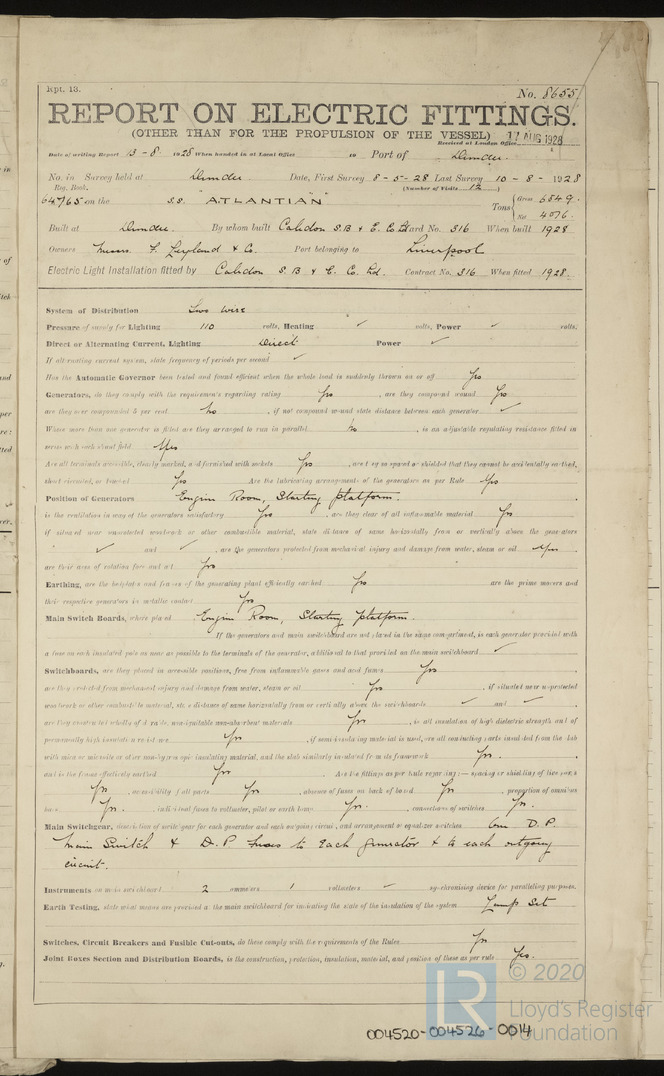 Rpt. 13.
No. 8655
REPORT ON ELECTRIC FITTINGS.
(OTHER THAN FOR THE PROPULSION OF THE VESSEL)
17 AUG 1928
Received at London Office
Date of writing Report 13-8- 1928 When handed in at Local Office 19 Port of Dundee.
No. in Survey held at Dundee Date, First Survey 8-5-28 Last Survey 10-8-1928
Reg. Book.
(Number of Visits 12)
64765 on the S.S. "ATLANTIAN" Tons { Gross 6549.
Net 4076.
Built at Dundee. By whom built Caledon S.B & E. Co Ltd Yard No. 316 When built 1928
Owners Messrs F. Leyland & Co. Port belonging to Liverpool
Electric Light Installation fitted by Caledon S.B & E. Co. Ltd. Contract No. 316 When fitted 1928.
System of Distribution Two Wire
Pressure of supply for Lighting 110 volts, Heating ✓ volts, Power ✓ volts.
Direct or Alternating Current, Lighting Direct Power ✓
If alternating current system, state frequency of periods per second ✓
Has the Automatic Governor been tested and found efficient when the whole load is suddenly thrown on or off Yes
Generators, do they comply with the requirements regarding rating Yes, are they compound wound Yes
are they over compounded 5 per cent. No, if not compound wound state distance between each generator ✓
Where more than one generator is fitted are they arranged to run in parallel No, is an adjustable regulating resistance fitted in
series with each shunt field Yes
Are all terminals accessible, clearly marked, and furnished with sockets Yes, are they so spaced or shielded that they cannot be accidentally earthed,
short circuited, or touched Yes Are the lubricating arrangements of the generators as per Rule Yes
Position of Generators Engine Room, Starting platform.
is the ventilation in way of the generators satisfactory Yes, are they clear of all inflammable material Yes
if situated near unprotected woodwork or other combustible material, state distance of same horizontally from or vertically above the generators
✓ and ✓, are the generators protected from mechanical injury and damage from water, steam or oil Yes
are their axes of rotation fore and aft Yes
Earthing, are the bedplates and frames of the generating plant efficiently earthed Yes are the prime movers and
their respective generators in metallic contact Yes
Main Switch Boards, where placed Engine Room, Starting platform.
If the generators and main switchboard are not placed in the same compartment, is each generator provided with
a fuse on each insulated pole as near as possible to the terminals of the generator, additional to that provided on the main switchboard ✓
Switchboards, are they placed in accessible positions, free from inflammable gases and acid fumes Yes
are they protected from mechanical injury and damage from water, steam or oil Yes, if situated near unprotected
woodwork or other combustible material, state distance of same horizontally from or vertically above the switchboards ✓ and ✓
are they constructed wholly of durable, non-ignitable non-absorbent materials Yes, is all insulation of high dielectric strength and of
permanently high insulation resistance Yes, if semi-insulating material is used, are all conducting parts insulated from the slab
with mica or micanite or other non-hygroscopic insulating material, and the slab similarly insulated from its framework Yes.
and is the frame effectively earthed Yes Are the fittings as per Rule regarding:— spacing or shielding of live parts
Yes, accessibility of all parts Yes, absence of fuses on back of board Yes, proportion of omnibus
bars Yes, individual fuses to voltmeter, pilot or earth lamp Yes, connections of switches Yes.
Main Switchgear, description of switchgear for each generator and each outgoing circuit, and arrangement of equalizer switches One D.P.
Main Switch & D.P Fuses to Each Generator & to each outgoing
circuit.
Instruments on main switchboard 2 ammeters 1 voltmeters ✓ synchronising device for paralleling purposes.
Earth Testing, state what means are provided on the main switchboard for indicating the state of the insulation of the system Lamp Set
Switches, Circuit Breakers and Fusible Cut-outs, do these comply with the requirements of the Rules Yes
Joint Boxes Section and Distribution Boards, is the construction, protection, insulation, material, and position of these as per rule Yes.
LR
© 2020
Lloyd's Register
Foundation
004520-004526-0014